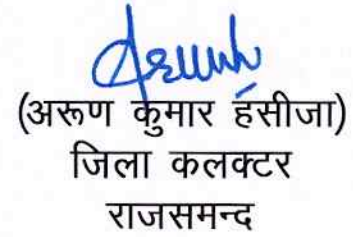 (अरूण कुमार हसीजा)
जिला कलक्टर
राजसमन्द